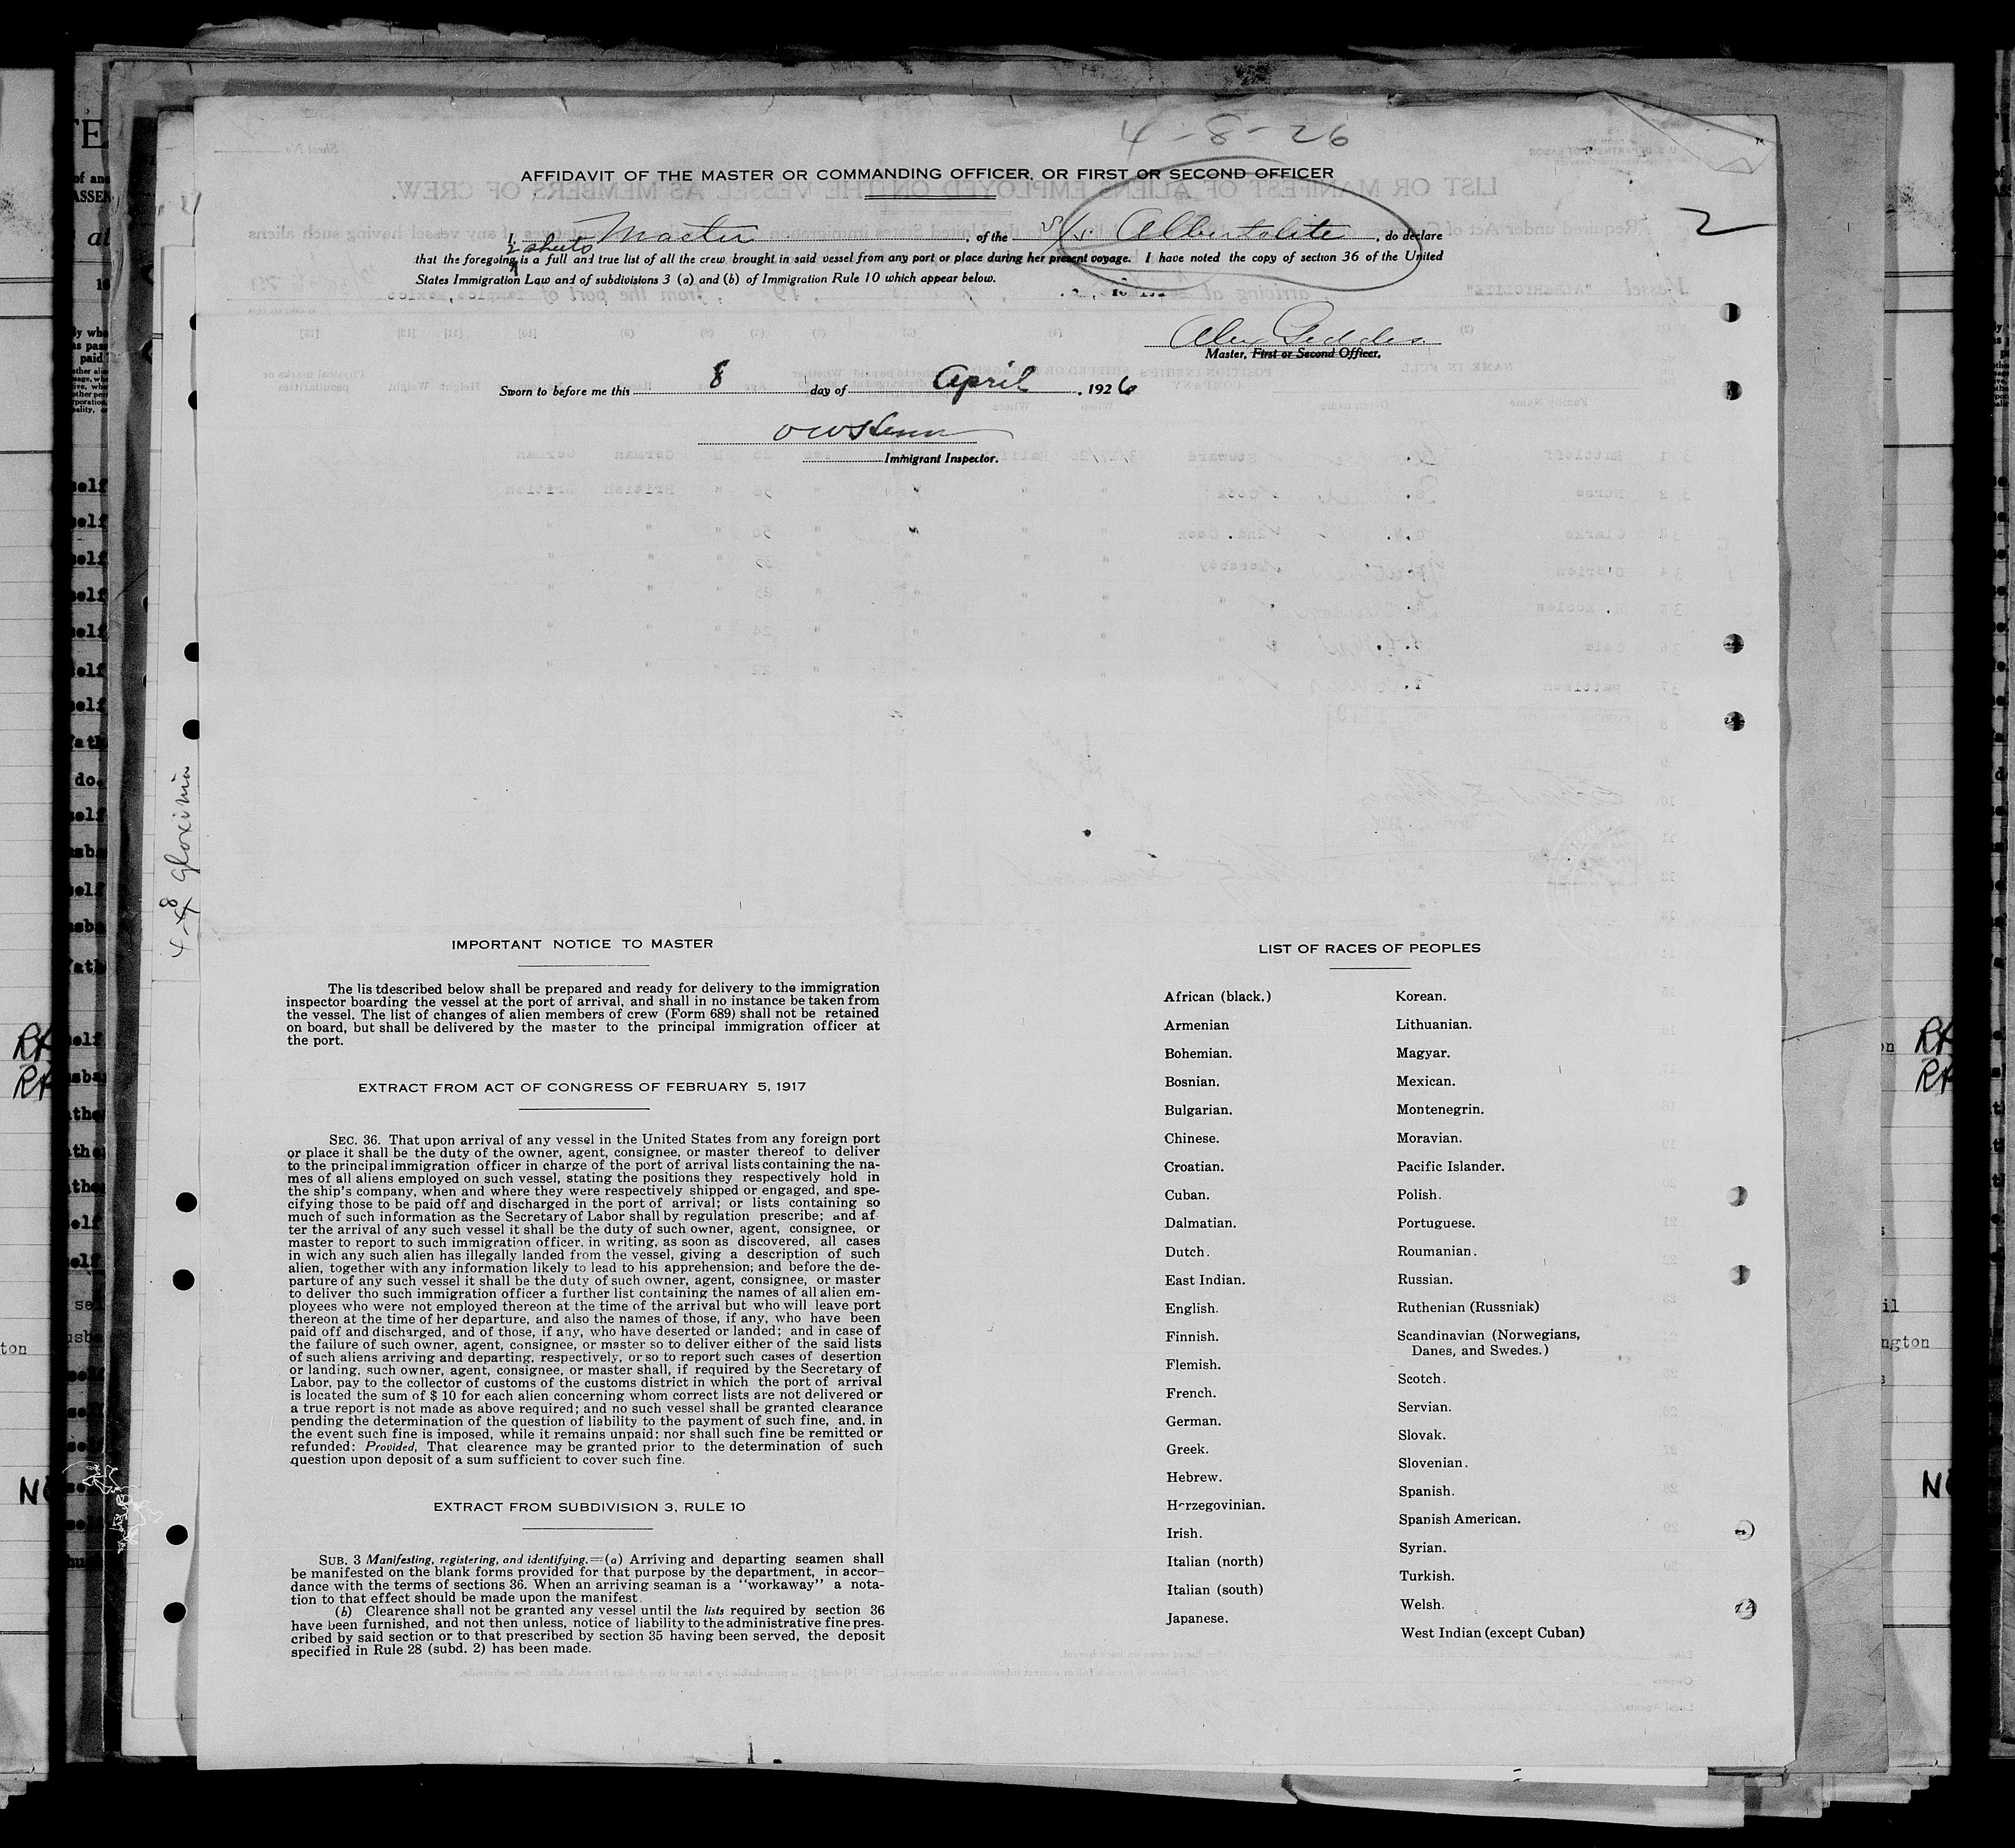 4-8-26
AFFIDAVIT OF THE MASTER OR COMMANDING OFFICER, OR FIRST OR SECOND OFFICER
2
I, Master, of the S/S. Albertolite, do declare
2 sheets
that the foregoing is a full and true list of all the crew brought in said vessel from any port or place during her present voyage. I have noted the copy of section 36 of the United
States Immigration Law and of subdivisions 3 (a) and (b) of Immigration Rule 10 which appear below.
Alex Geddes.
Master, First or Second Officer.
Sworn to before me this 8 day of April, 1926
Immigrant Inspector.
4-8 Gloxinia
IMPORTANT NOTICE TO MASTER
The lis tdescribed below shall be prepared and ready for delivery to the immigration
inspector boarding the vessel at the port of arrival, and shall in no instance be taken from
the vessel. The list of changes of alien members of crew (Form 689) shall not be retained
on board, but shall be delivered by the master to the principal immigration officer at
the port.
EXTRACT FROM ACT OF CONGRESS OF FEBRUARY 5, 1917
SEC. 36. That upon arrival of any vessel in the United States from any foreign port
or place it shall be the duty of the owner, agent, consignee, or master thereof to deliver
to the principal immigration officer in charge of the port of arrival lists containing the na-
mes of all aliens employed on such vessel, stating the positions they respectively hold in
the ship's company, when and where they were respectively shipped or engaged, and spe-
cifying those to be paid off and discharged in the port of arrival; or lists containing so
much of such information as the Secretary of Labor shall by regulation prescribe; and af-
ter the arrival of any such vessel it shall be the duty of such owner, agent, consignee, or
master to report to such immigration officer, in writing, as soon as discovered, all cases
in wich any such alien has illegally landed from the vessel, giving a description of such
alien, together with any information likely to lead to his apprehension; and before the de-
parture of any such vessel it shall be the duty of such owner, agent, consignee, or master
to deliver tho such immigration officer a further list containing the names of all alien em-
ployees who were not employed thereon at the time of the arrival but who will leave port
thereon at the time of her departure, and also the names of those, if any, who have been
paid off and discharged, and of those, if any, who have deserted or landed; and in case of
the failure of such owner, agent, consignee, or master so to deliver either of the said lists
of such aliens arriving and departing, respectively, or so to report such cases of desertion
or landing, such owner, agent, consignee, or master shall, if required by the Secretary of
Labor, pay to the collector of customs of the customs district in which the port of arrival
is located the sum of $ 10 for each alien concerning whom correct lists are not delivered or
a true report is not made as above required; and no such vessel shall be granted clearance
pending the determination of the question of liability to the payment of such fine, and, in
the event such fine is imposed, while it remains unpaid; nor shall such fine be remitted or
refunded: Provided, That clearance may be granted prior to the determination of such
question upon deposit of a sum sufficient to cover such fine.
EXTRACT FROM SUBDIVISION 3, RULE 10
SUB. 3 Manifesting, registering, and identifying.=(a) Arriving and departing seamen shall
be manifested on the blank forms provided for that purpose by the department, in accor-
dance with the terms of sections 36. When an arriving seaman is a "workaway" a nota-
tion to that effect should be made upon the manifest.
(b) Clearance shall not be granted any vessel until the lists required by section 36
have been furnished, and not then unless, notice of liability to the administrative fine pres-
cribed by said section or to that prescribed by section 35 having been served, the deposit
specified in Rule 28 (subd. 2) has been made.
LIST OF RACES OF PEOPLES
African (black.)
Armenian
Bohemian.
Bosnian.
Bulgarian.
Chinese.
Croatian.
Cuban.
Dalmatian.
Dutch.
East Indian.
English.
Finnish.
Flemish.
French.
German.
Greek.
Hebrew.
Herzegovinian.
Irish.
Italian (north)
Italian (south)
Japanese.
Korean.
Lithuanian.
Magyar.
Mexican.
Montenegrin.
Moravian.
Pacific Islander.
Polish.
Portuguese.
Roumanian.
Russian.
Ruthenian (Russniak)
Scandinavian (Norwegians,
Danes, and Swedes.)
Scotch.
Servian.
Slovak.
Slovenian.
Spanish.
Spanish American.
Syrian.
Turkish.
Welsh.
West Indian (except Cuban)